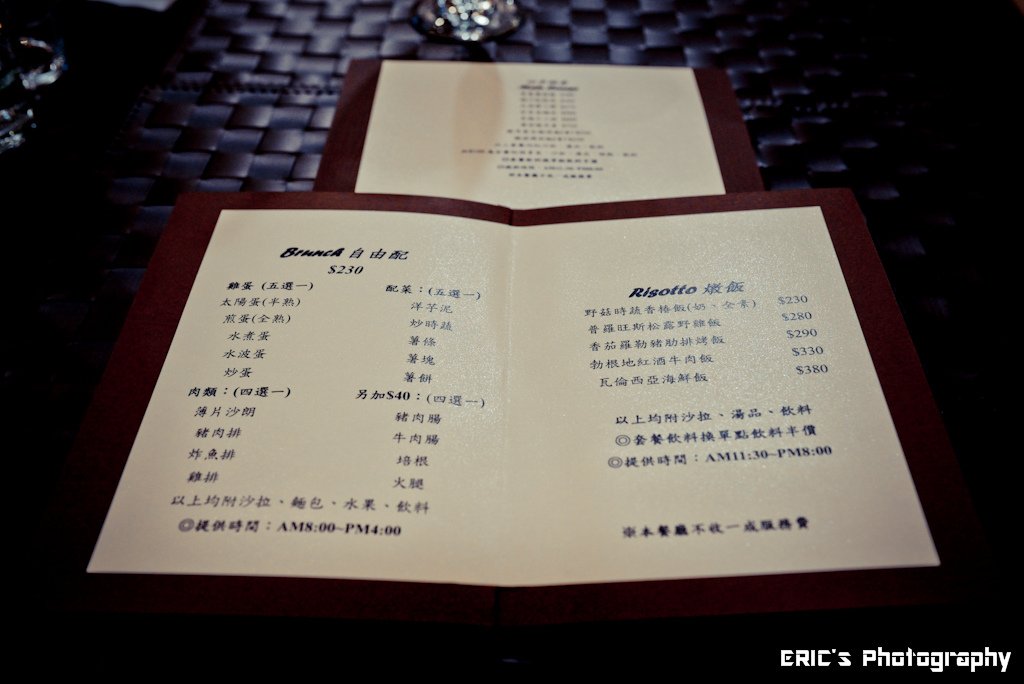 Brunch 自由配
$230
雞蛋 (五選一)
太陽蛋(半熟)
煎蛋(全熟)
水煮蛋
水波蛋
炒蛋
配菜：(五選一)
洋芋泥
炒時蔬
薯條
薯塊
薯餅
肉類：(四選一)
薄片沙朗
豬肉排
炸魚排
雞排
另加$40：(四選一)
豬肉腸
牛肉腸
培根
火腿
以上均附沙拉、麵包、水果、飲料
◎提供時間：AM8:00~PM4:00
Risotto 燉飯
野菇時蔬香椿飯(奶、全素) $230
普羅旺斯松露野雞飯 $280
香茄羅勒豬肋排烤飯 $290
勃根地紅酒牛肉飯 $330
瓦倫西亞海鮮飯 $380
以上均附沙拉、湯品、飲料
◎套餐飲料換單點飲料半價
◎提供時間：AM11:30~PM8:00
※本餐廳不收一成服務費
ERIC's Photography